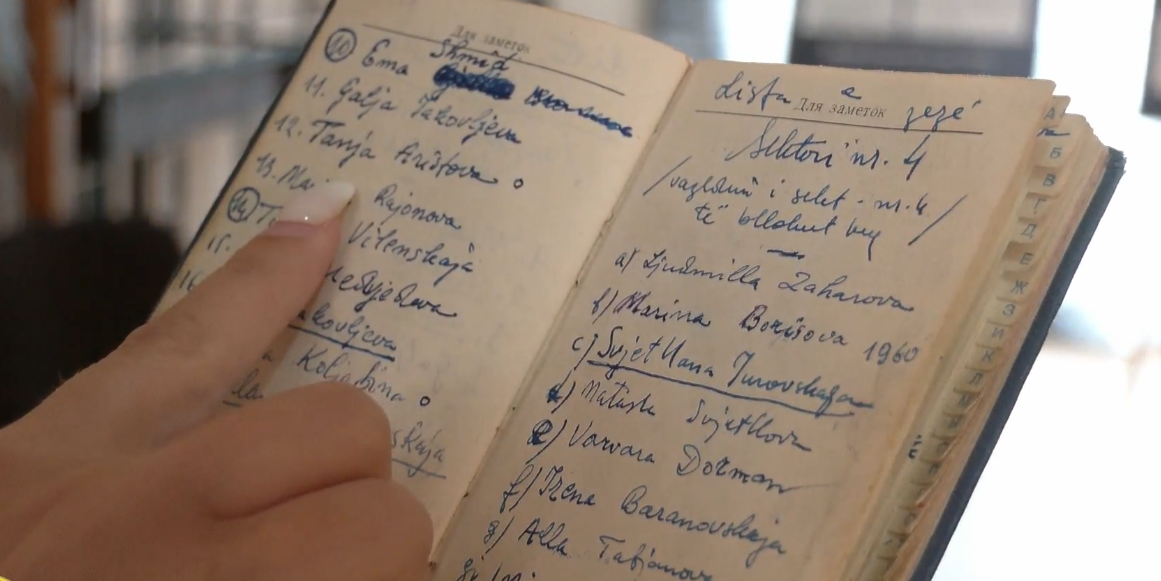 Для заметок
10 Ema Shmid
11. Galja Jakovljeva
12. Tanja Aristova
13. Ma Rajonova
14 Vilenskaja
15.
16
akovljeva
Koljabina
skaja
Lista e zezë
Для заметок
Sektori nr. 4
/vazhdimi i selet - nr. 4/
të bllokut
a) Ljudmilla Zaharova
b) Marina Borisova 1960
c) Svjetllana Jurovskaja
d) Natasha Svjetllova
e) Varvara Dorman
f) Irena Baranovskaja
g) Alla Tatjanova
А
Б
В
Г
Д
Е
Ж
З
И
К
Л